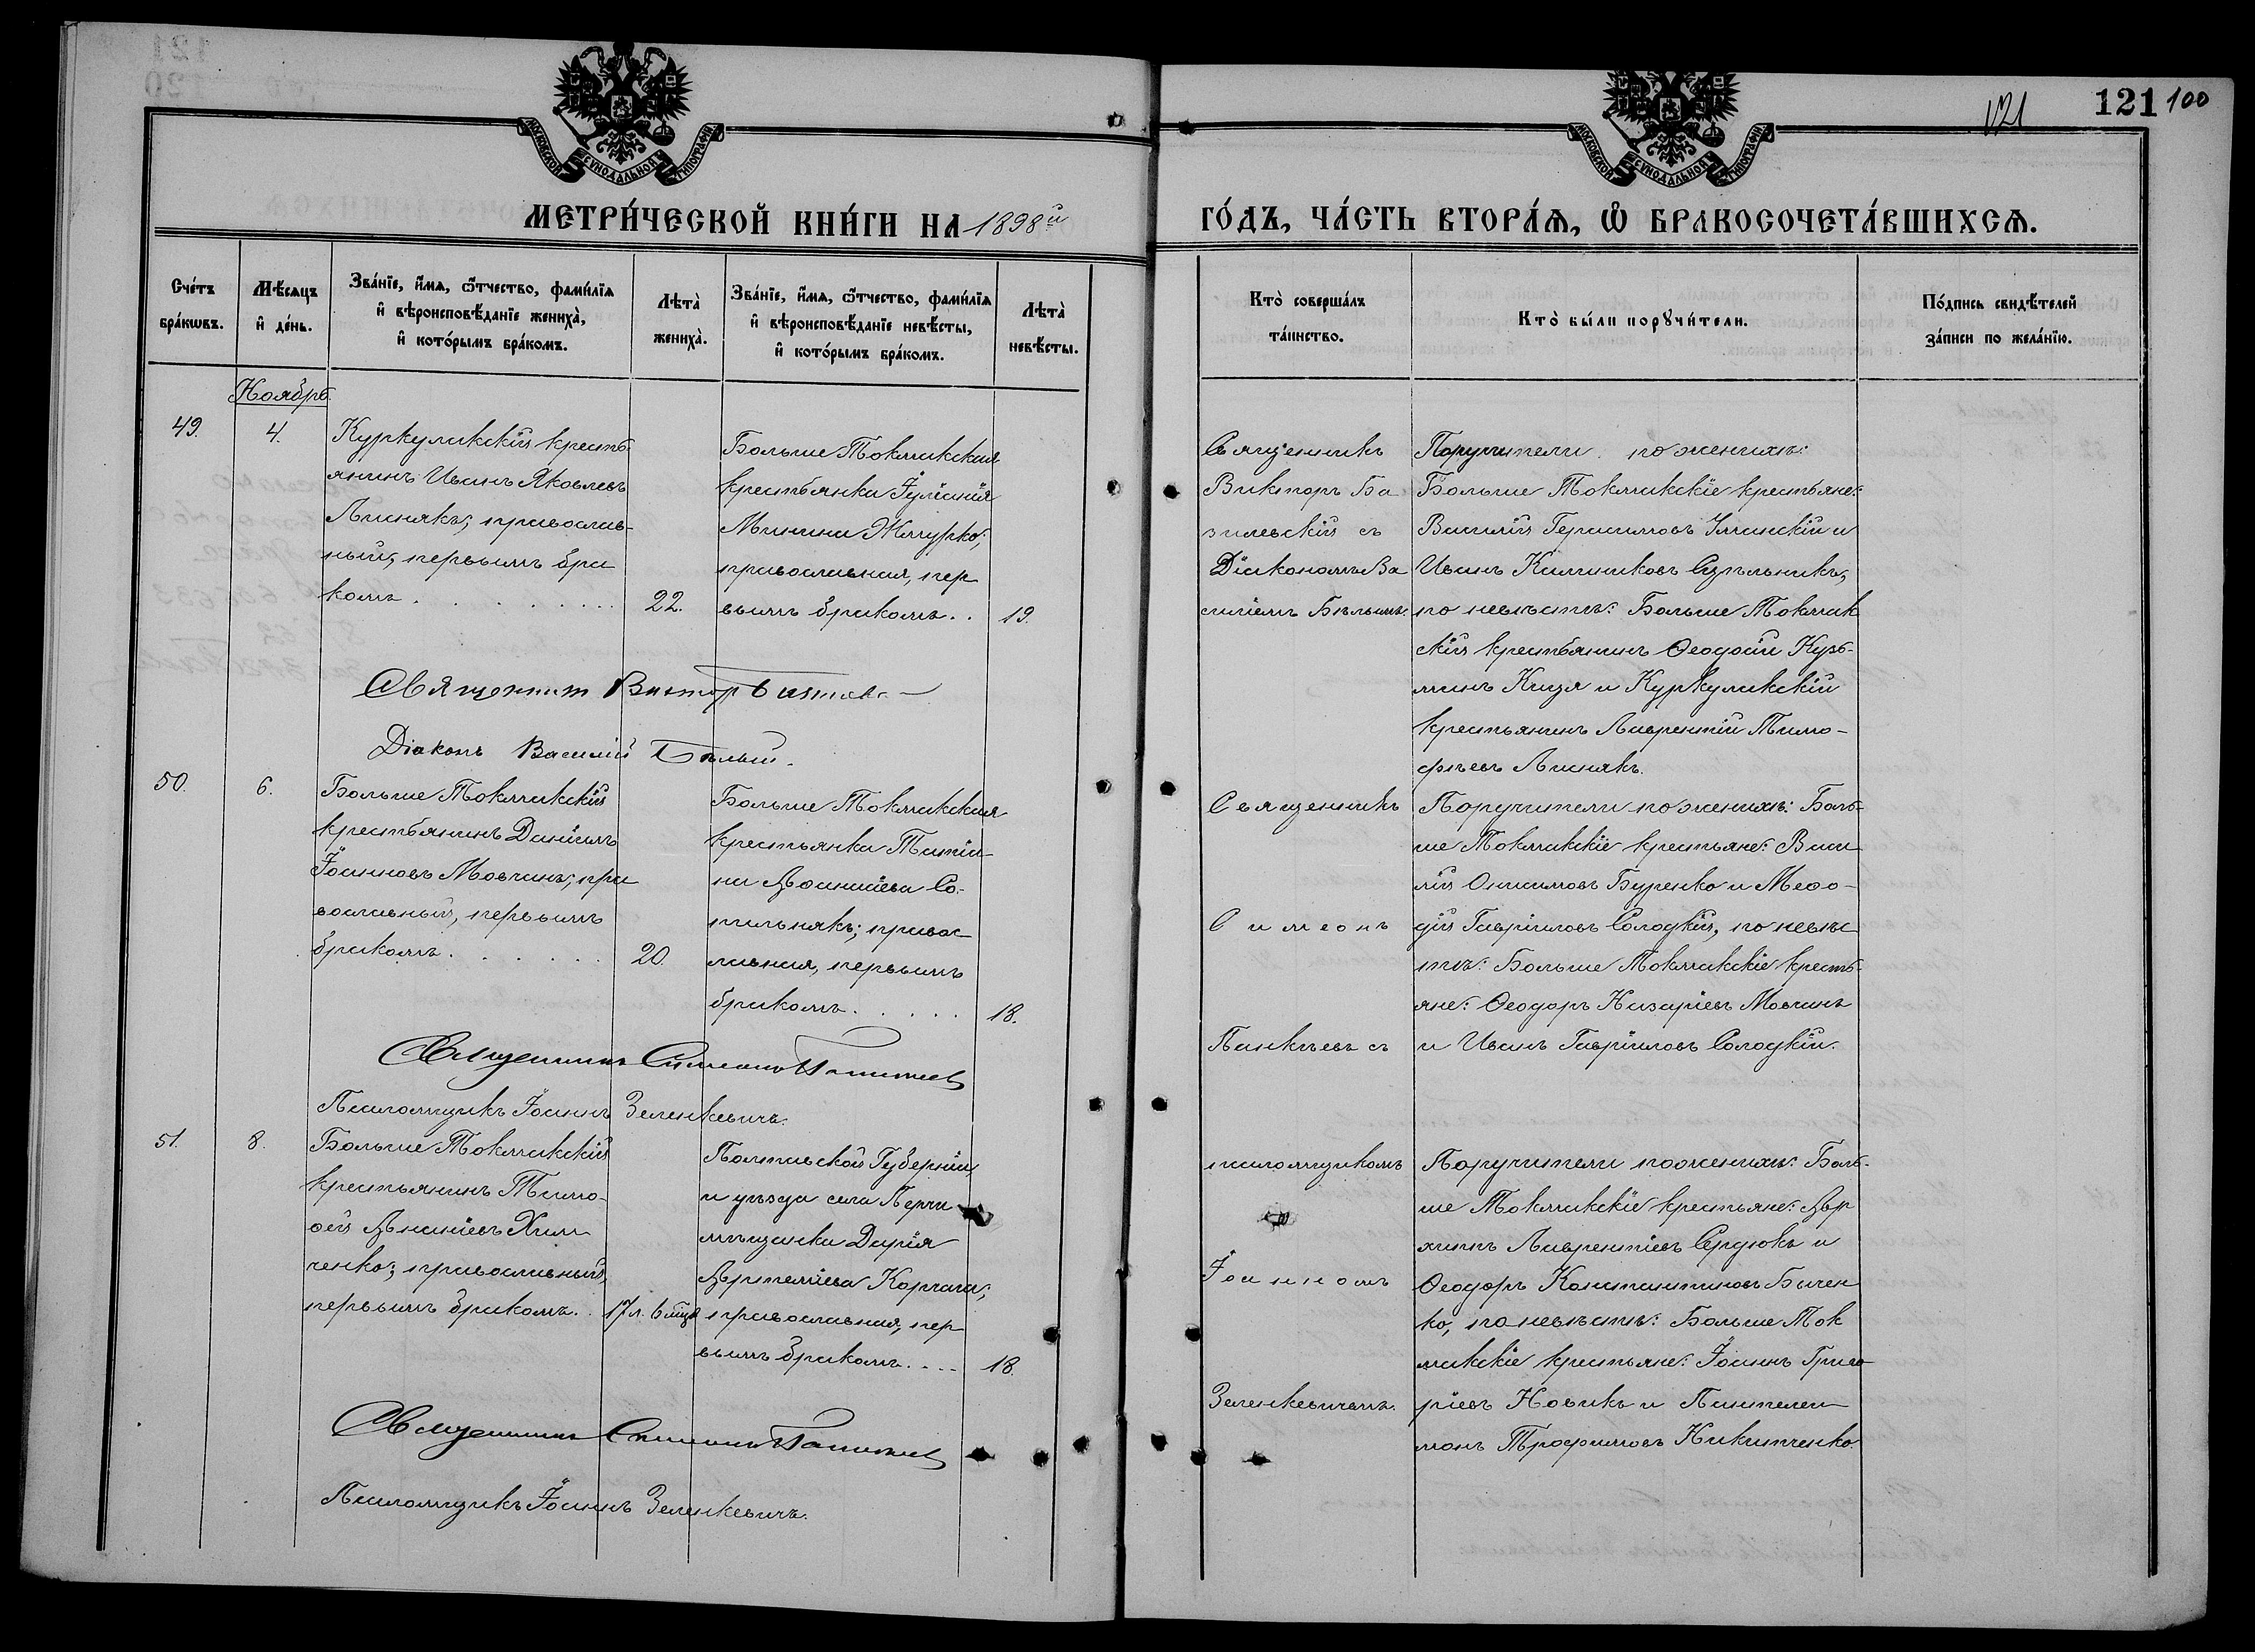 121 100
121
МОСКОВСКОЙ СѴНОДАЛЬНОЙ ТИПОГРАФІИ
МОСКОВСКОЙ СѴНОДАЛЬНОЙ ТИПОГРАФІИ
МЕТРИ́ЧЕСКОЙ КНИ́ГИ НА 1898й
ГО́ДЪ, ЧА́СТЬ ВТОРА́Я, Ѡ БРАКОСОЧЕТА́ВШИХСЯ.
Сче́тъ бра́кѡвъ.
Мѣ́сяцъ и де́нь.
Зва́нїе, и́мя, ѻ́тчество, фами́лїя
и вѣроисповѣ́данїе жениха̀,
и кото́рымъ бра́комъ.
Лѣта̀ жениха̀.
Зва́нїе, и́мя, ѻ́тчество, фами́лїя
и вѣроисповѣ́данїе невѣ́сты,
и кото́рымъ бра́комъ.
Лѣта̀ невѣ́сты.
Кто̀ соверша́лъ
та́инство.
Кто̀ бы́ли порꙋчи́тели.
По́дпись свидѣ́телей
за́писи по жела́нїю.
Ноябрь
49.
4.
Куркулакскій кресть-
янинъ Иванъ Яковлевъ
Лиснякъ; православ-
ный, первымъ бра
комъ
22.
Больше Токмакская
крестьянка Іуліанія
Минина Жмурко;
православная, пер
вымъ бракомъ..
19.
Священникъ
Викторъ Ба
зилевскій съ
Діакономъ Ва
силіемъ Бѣлымъ.
Поручители по женихѣ:
Больше Токмакскіе крестьяне:
Василій Герасимовъ Уманскій и
Иванъ Каллиниковъ Сѣдѣльникъ;
по невѣстѣ: Больше Токмак
скій крестьянинъ Ѳеодосій Кузь-
минъ Кидя и Куркулакскій
крестьянинъ Лаврентій Тимо-
фѣевъ Лиснякъ.
Священникъ Викторъ
Діаконъ Василій Бѣлый.
50.
6.
Больше Токмакскій
крестьянинъ Даніилъ
Іоанновъ Мовчанъ; пра
вославный, первымъ
бракомъ
20.
Больше Токмакская
крестьянка Татіа-
на Аѳанасіева Со-
пильнякъ; правос
лавная, первымъ
бракомъ
18.
Священникъ
Симеонъ
Панкѣевъ съ
Поручители по женихѣ: Боль-
ше Токмакскіе крестьяне: Васи
лій Онисимовъ Буренко и Меѳо-
дій Гавріиловъ Солодкій, по невѣс
тѣ: Больше Токмакскіе кресть-
яне: Ѳеодоръ Назаріевъ Мовчанъ
и Иванъ Гавріиловъ Солодкій.
Священникъ Симеонъ Панкѣевъ
Псаломщикъ Іоаннъ Зеленкевичъ.
51.
8.
Больше Токмакскій
крестьянинъ Тимо-
ѳей Ананіевъ Хим
ченко; православный,
первымъ бракомъ.
17 л. 6 мѣц
Полтавской Губерніи
и уѣзда села
мѣщанка Дарія
Артеміева Корпачъ;
православная, пер
вымъ бракомъ
18.
псаломщикомъ
Іоанномъ
Зеленкевичемъ.
Поручители по женихѣ: Боль-
ше Токмакскіе крестьяне: Ар
хиппъ Лаврентіевъ Сердюкъ и
Ѳеодоръ Константиновъ Бычен
ко, по невѣстѣ: Больше Ток
макскіе крестьяне: Іоаннъ Григо
ріевъ Новикъ и Пантелеи
монъ Трофимовъ Никитченко.
Священникъ Симеонъ Панкѣевъ
Псаломщикъ Іоаннъ Зеленкевичъ.